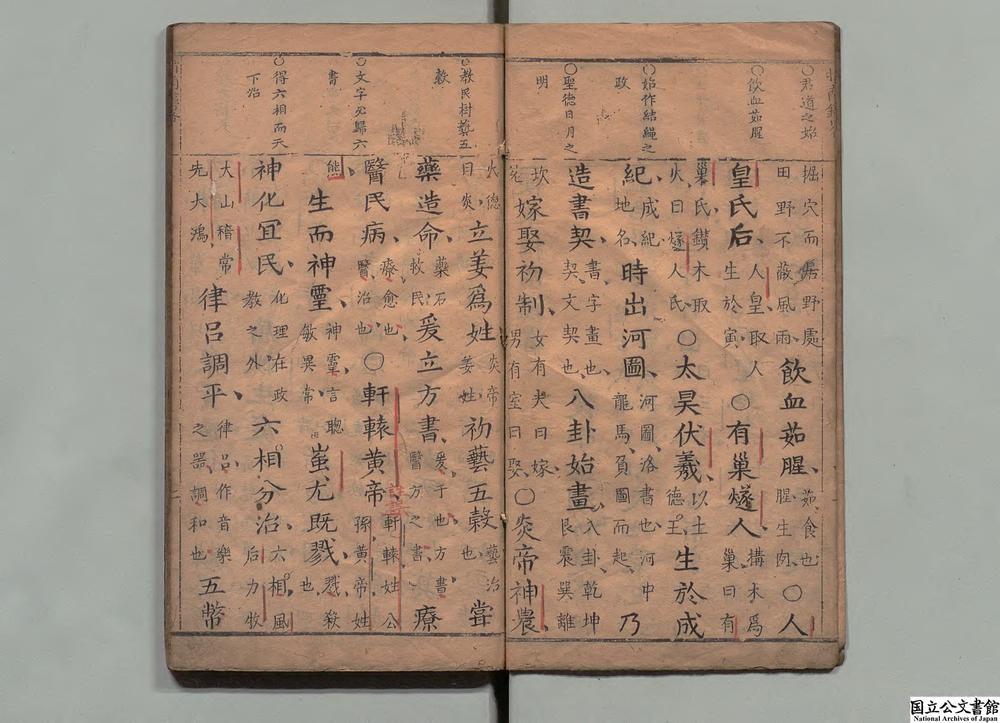 〇君道之始
〇飲血茹腥
〇始作結繩之
政
〇聖德日月之
明
掘穴而居野處田野不蔽風雨飲血茹腥茹食也腥生肉〇人
皇氏后人皇取人生於寅〇有巢燧人搆木爲巢曰有
巢氏鑚木取火曰燧人氏〇太昊伏羲以土德王生於成
紀成紀地名時出河圖河圖洛書也河中龍馬負圖而起乃
造書契書字畫也契文契也八卦始畫八卦乾坤艮震巽離
坎兌嫁娶初制女有夫曰嫁男有室曰娶〇炎帝神農
〇教民樹藝五
穀
〇文字必歸六
書
〇得六相而天
下治
火德曰炎立姜爲姓炎帝姜姓初藝五穀藝治也嘗
藥造命藥石牧民爰立方書爰于也方書醫方之書療
醫民病療愈也醫治也〇軒轅黃帝軒轅姓公孫黃帝姓
熊生而神靈神靈言聰敏異常蚩尤既戮戮殺也
神化宜民化理在政教之外六相分治六相風后力牧
大山稽常先大鴻律呂調平律呂作音樂之器調和也五幣
国立公文書館
National Archives of Japan